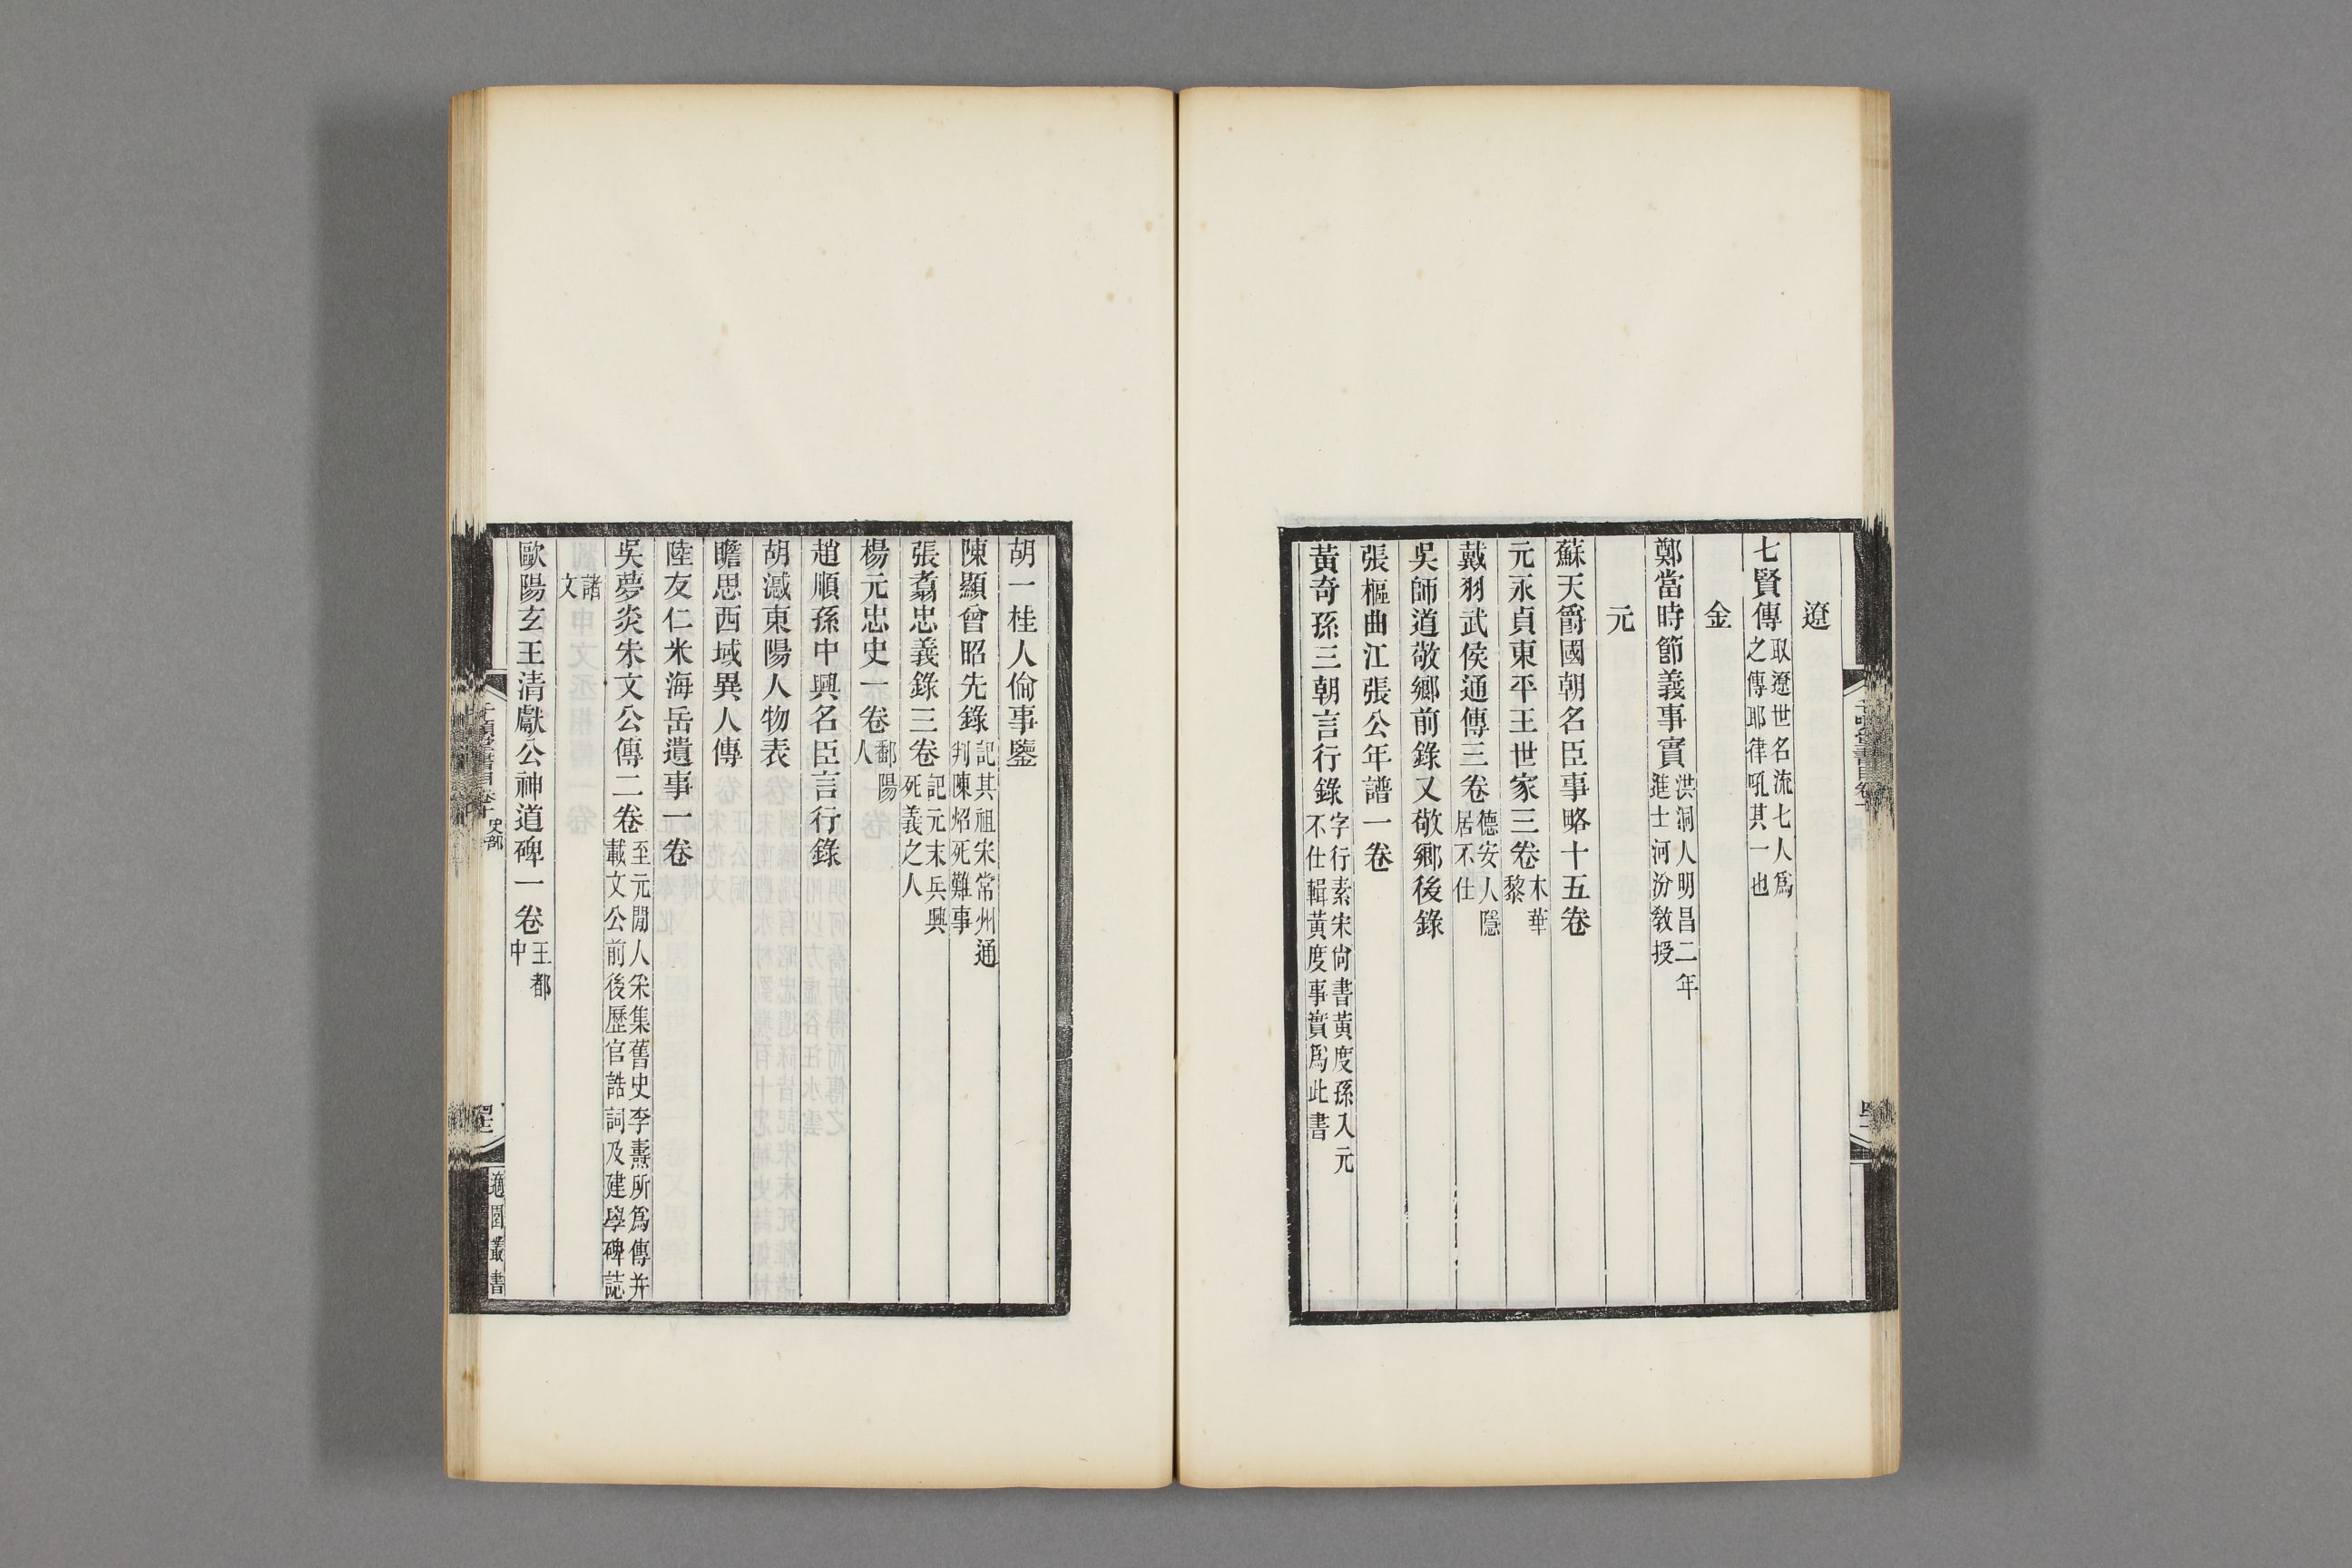 遼
七賢傳取遼世名流七人爲之傳耶律吼其一也
金
鄭當時節義事實洪洞人明昌二年進士河汾敎授
元
蘇天爵國朝名臣事略十五卷
元永貞東平王世家三卷木華黎
戴羽武侯通傳三卷德安人隱居不仕
吳師道敬鄉前錄又敬鄉後錄
張樞曲江張公年譜一卷
黃奇孫三朝言行錄字行素宋尙書黃度孫入元不仕輯黃度事實爲此書
胡一桂人倫事鑒
陳顯曾昭先錄記其祖宋常州通判陳炤死難事
張翥忠義錄三卷記元末兵興死義之人
楊元忠史一卷鄱陽人
趙順孫中興名臣言行錄
胡濊東陽人物表
瞻思西域異人傳
陸友仁米海岳遺事一卷
吳夢炎朱文公傳二卷至元閒人采集舊史李燾所爲傳并載文公前後歷官誥詞及建學碑誌
諸文
歐陽玄王淸獻公神道碑一卷王都中
千頃堂書目卷十 史部
適園叢書